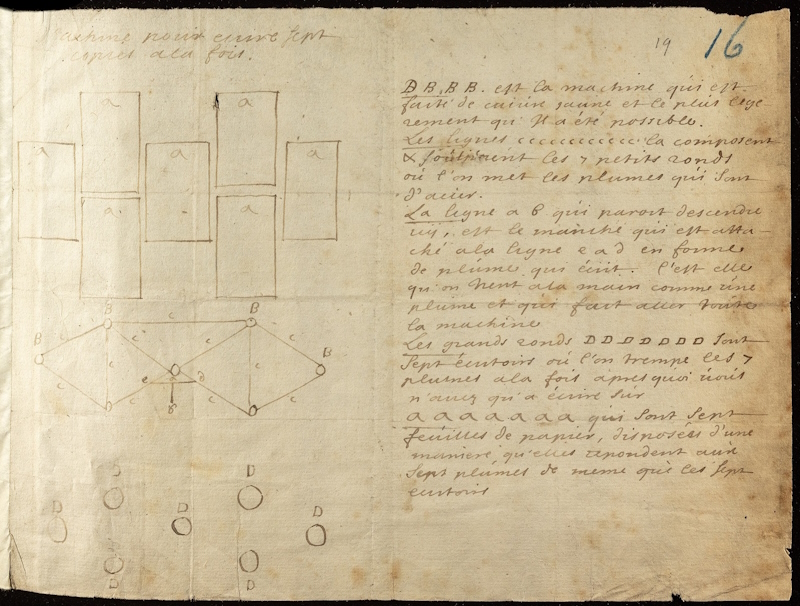 Machine pour ecrire sept
copies a la fois.
a a
a a a
a a
B c B
B c c c c B
c c c c
c c e d c c
b
D D
D D D
D D
19 16
D B, B B. est la machine qui est
faite de cuivre jaune et le plus lege
rement qu'il a été possible.
Les lignes ccccccccccc la composent
& soutiennent les 7 petits ronds
où l'on met les plumes qui sont
d'acier.
La ligne a b qui paroit descendre
icy, est le manche qui est atta-
ché a la ligne e a d en forme
de plume qui écrit. C'est elle
qu'on tient a la main comme une
plume et qui fait aller toute
la machine
Les grands ronds D D D D D D D sont
sept écritoirs où l'on trempe les 7
plumes a la fois apres quoi vous
n'avez qu'a écrire sur
a a a a a a a qui sont sept
feuilles de papier, disposées d'une
maniere qu'elles repondent aux
sept plumes de meme que les sept
ecritoirs